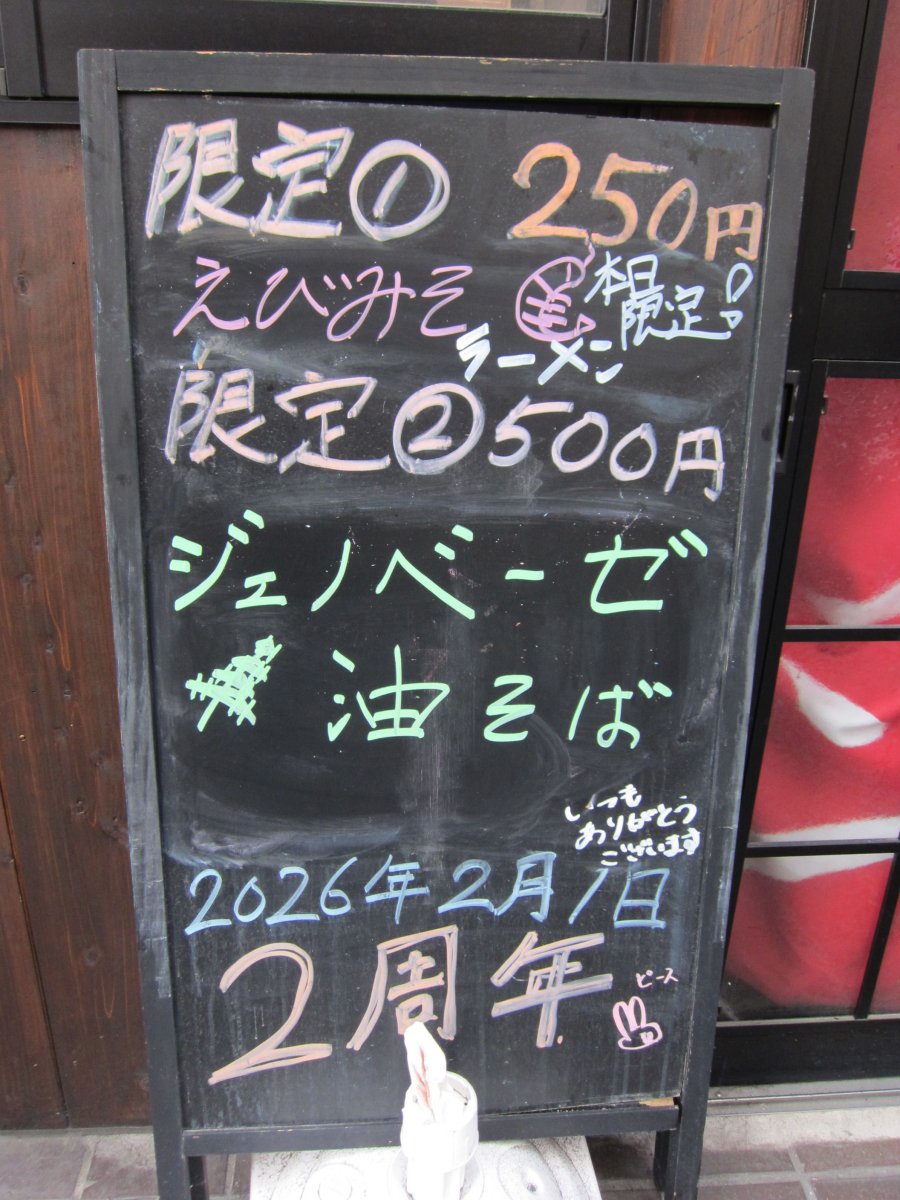 限定① 250円
えびみそ
本日
限定!
ラーメン
限定②500円
ジェノベーゼ
油そば
いつも
ありがとう
ございます
2026年2月1日
2周年
ピース